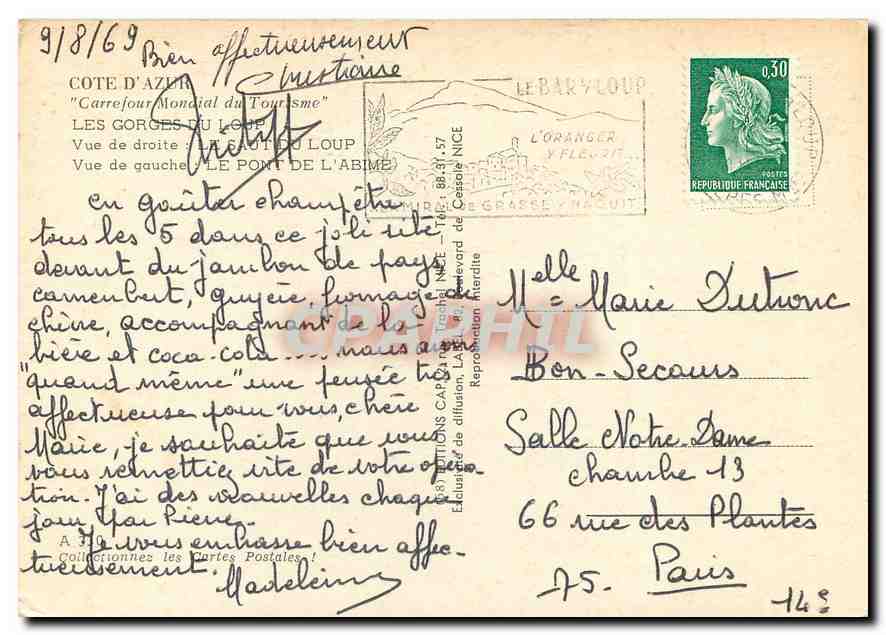 9/8/69
Bien affectueusement
Christiane
COTE D'AZUR
"Carrefour Mondial du Tourisme"
LES GORGES DU LOUP
Vue de droite : LE SAUT DU LOUP
Vue de gauche : LE PONT DE L'ABIME
en goûter champêtre
tous les 5 dans ce joli site
devant du jambon de pays,
camembert, gruyère, fromage de
chèvre, accompagnant de la
bière et coca-cola .... nous avons
"quand même" une pensée très
affectueuse pour vous, chère
Marie, je souhaite que vous
vous remettiez vite de votre opéra-
tion. J'ai des nouvelles chaque
jour par Pierre.
Je vous embrasse bien affec-
tueusement.
Madeleine
A 310
Collectionnez les Cartes Postales !
EDITIONS CAP, Trachel NICE - Tél. : 88.31.57
Exclusivité de diffusion, boulevard de Cessole NICE
Reproduction interdite
LE BAR S/ LOUP
L'ORANGER
Y FLEURIT...
L'AMIRAL DE GRASSE Y NAQUIT
0,30
POSTES
REPUBLIQUE FRANÇAISE
Melle Marie Dutronc
Bon-Secours
Salle Notre-Dame
chambre 13
66 rue des Plantes
75. Paris
14e
CPAPHIL